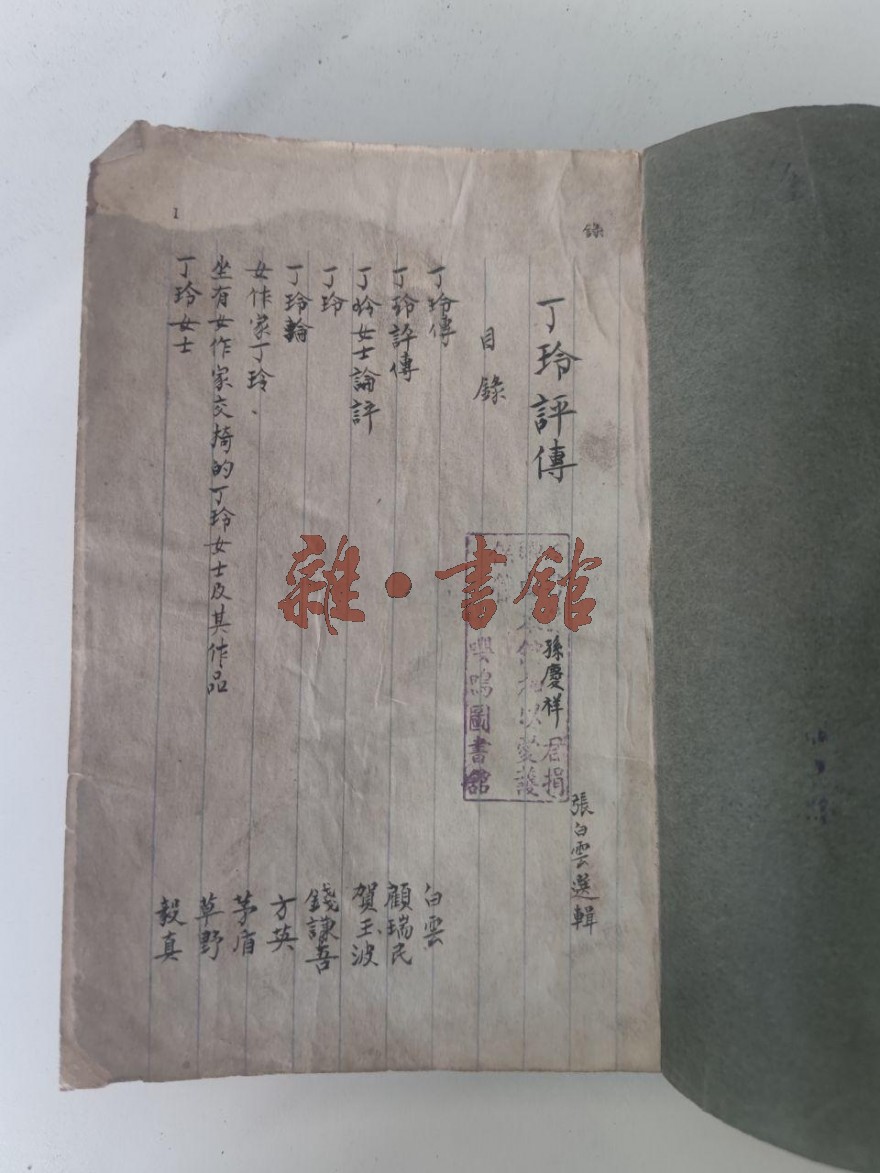 錄
丁玲評傳
張白雲選輯
目錄
丁玲傳
白雲
丁玲評傳
顧瑞民
丁玲女士論評
賀玉波
丁玲
錢謙吾
丁玲論
方英
女作家丁玲、
茅盾
坐有女作家交椅的丁玲女士及其作品
草野
丁玲女士
毅真
1
孫慶祥
君捐
嚶鳴圖書館
雜·書館